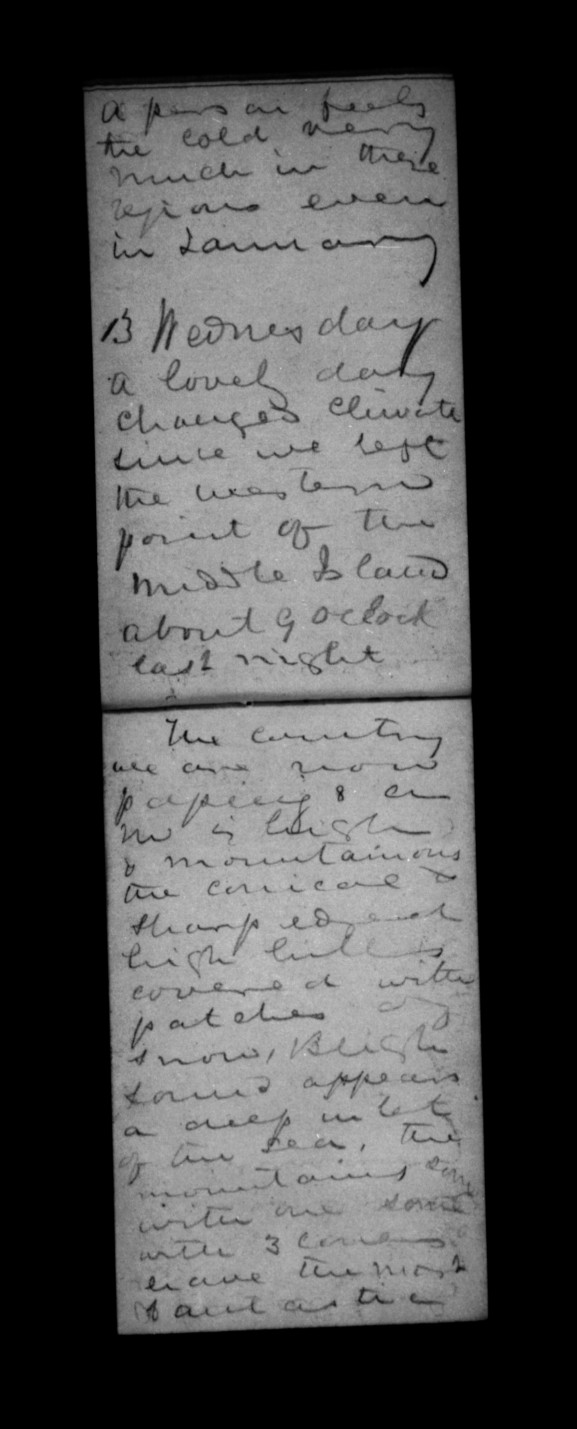 A person feels
the cold very
much in these
regions even
in January
13 Wednesday
a lovely day
changed climate
since we left
the western
point of the
Middle Island
about 9 oclock
last night
The country
we are now
passing 8 a
m is high
& mountainous
the conical &
sharp edged
high hills
covered with
patches of
snow, Bligh
Sound appears
a deep inlet
of the sea, the
mountains some
with one some
with 3 cones
have the most
fantastic